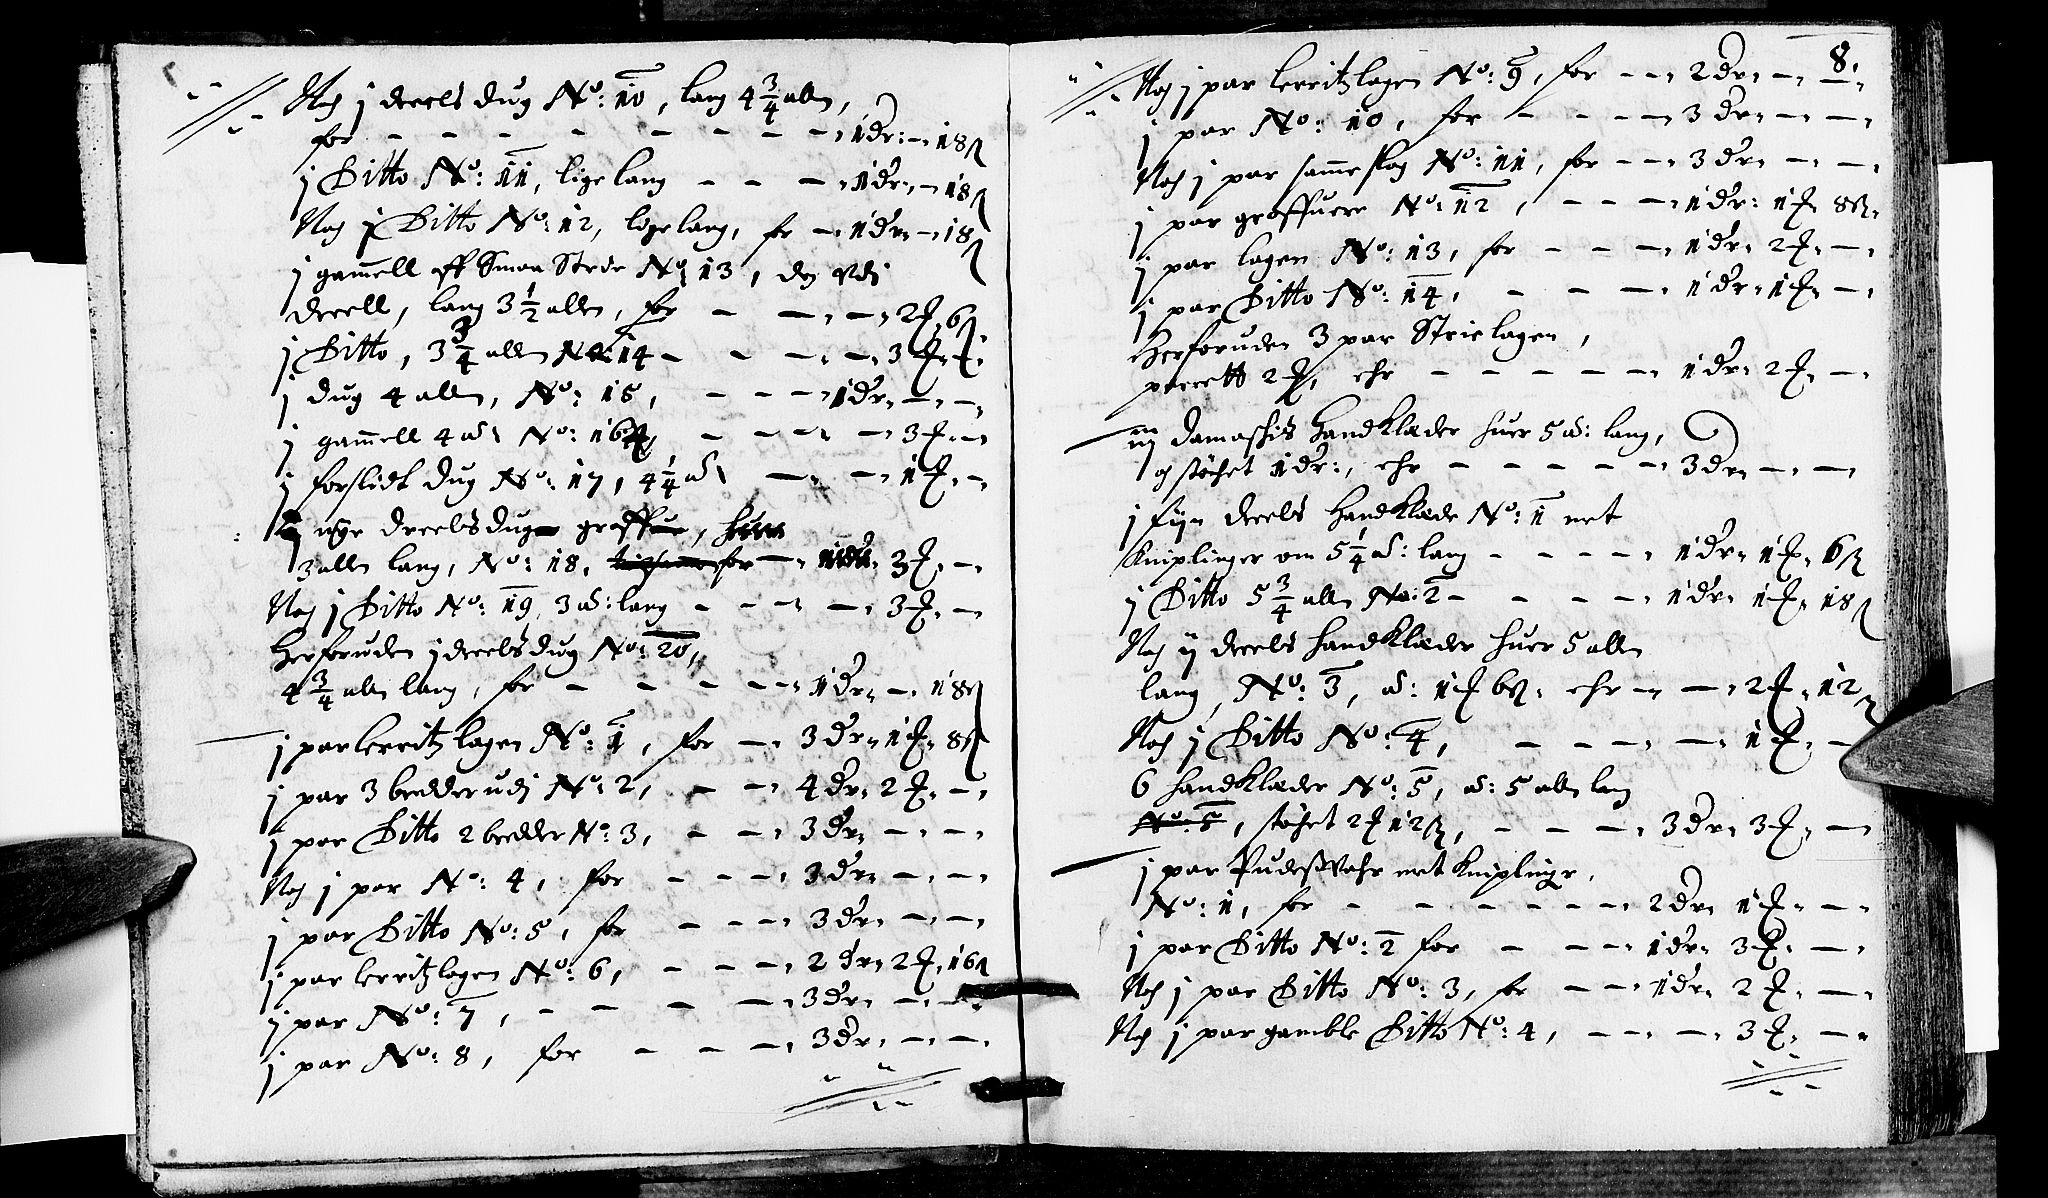 Noch j dreels dug No: 10, lang 4 3/4 allen,
for - - - - - - - - 1 dr: - 18 ß
j Ditto No: 11, lige lang - - - 1 dr: - 18 ß
Noch j Ditto No: 12, lige lang, for - 1 dr: - 18 ß
j gamell aff Smaa No: 13, og vdj
dreell, lang 3 1/2 allen, for - - - 2 ₰ 6 ß
j Ditto, 3 3/4 allen No: 14 - - - - 3 ₰ -
j dug 4 allen, No: 15, - - - 1 dr: - -
j gamell 4 al: No: 16, - - - - 3 ₰ -
j forslidt dug No: 17, 4 1/4 al: - - 1 ₰ -
nye dreels dug groffue, huer
3 allen lang, No: 18, for - 3 ₰ -
Noch j Ditto No: 19, 3 al: lang - - - - 3 ₰ -
Herforuden j dreels dug No: 20,
4 3/4 allen lang, for - - - - - 1 dr: - 18 ß
j par lerritz lagen No: 1, for - 3 dr: 1 ₰ 8 ß
j par 3 bredder udj No: 2, - - 4 dr: 2 ₰ -
j par Ditto 2 bredder No: 3, - - 3 dr: - -
Noch j par No: 4, for - - - 3 dr: - -
j par Ditto No: 5, for - - - 3 dr: - -
j par lerritz lagen No: 6, - - - 2 dr: 2 ₰ 16 ß
j par No: 7, - - - - 3 dr: - -
j par No: 8, for - - - 3 dr: - -
8.
Noch j par lerritz lagen No: 9, for - - 2 dr: - -
j par No: 10, for - - - - 3 dr: - -
Noch j par samme slag No: 11, for - - 3 dr: - -
j par groffuere No: 12, - - - 1 dr: 1 ₰ 8 ß
j par lagen No: 13, for - - - 1 dr: 2 ₰ -
j par Ditto No: 14, - - - 1 dr: 1 ₰ -
Herforuden 3 par Strie lagen,
parrett 2 ₰, ehr - - - - - 1 dr: 2 ₰ -
iij damaskis Handklæder huer 5 al: lang,
og støchet 1 dr:, ehr - - - - - 3 dr: - -
j fijn dreels Handklæde No: 1 met
Kniplinger om 5 1/4 al: lang - - - - 1 dr: 1 ₰ 6 ß
j Ditto 5 3/4 allen No: 2 - - - - 1 dr: 1 ₰ 18 ß
Noch ij dreels Handklæder huer 5 allen
lang, No: 3, al: 1 ₰ 6 ß ehr - - 2 ₰ 12 ß
Noch j Ditto No: 4, - - - - 1 ₰ -
6 Handklæder No: 5, al: 5 allen lang
No: 5, støchet 2 ₰ 12 ß, - - - 3 dr: 3 ₰ -
j par Pudeßvahr met Kniplinge,
No: 1, for - - - - - - 2 dr: 1 ₰ -
j par Ditto No: 2 for - - - 1 dr: 3 ₰ -
Noch j par Ditto No: 3, for - - 1 dr: 2 ₰ -
Noch j par gamble Ditto No: 4, - - - 3 ₰ -